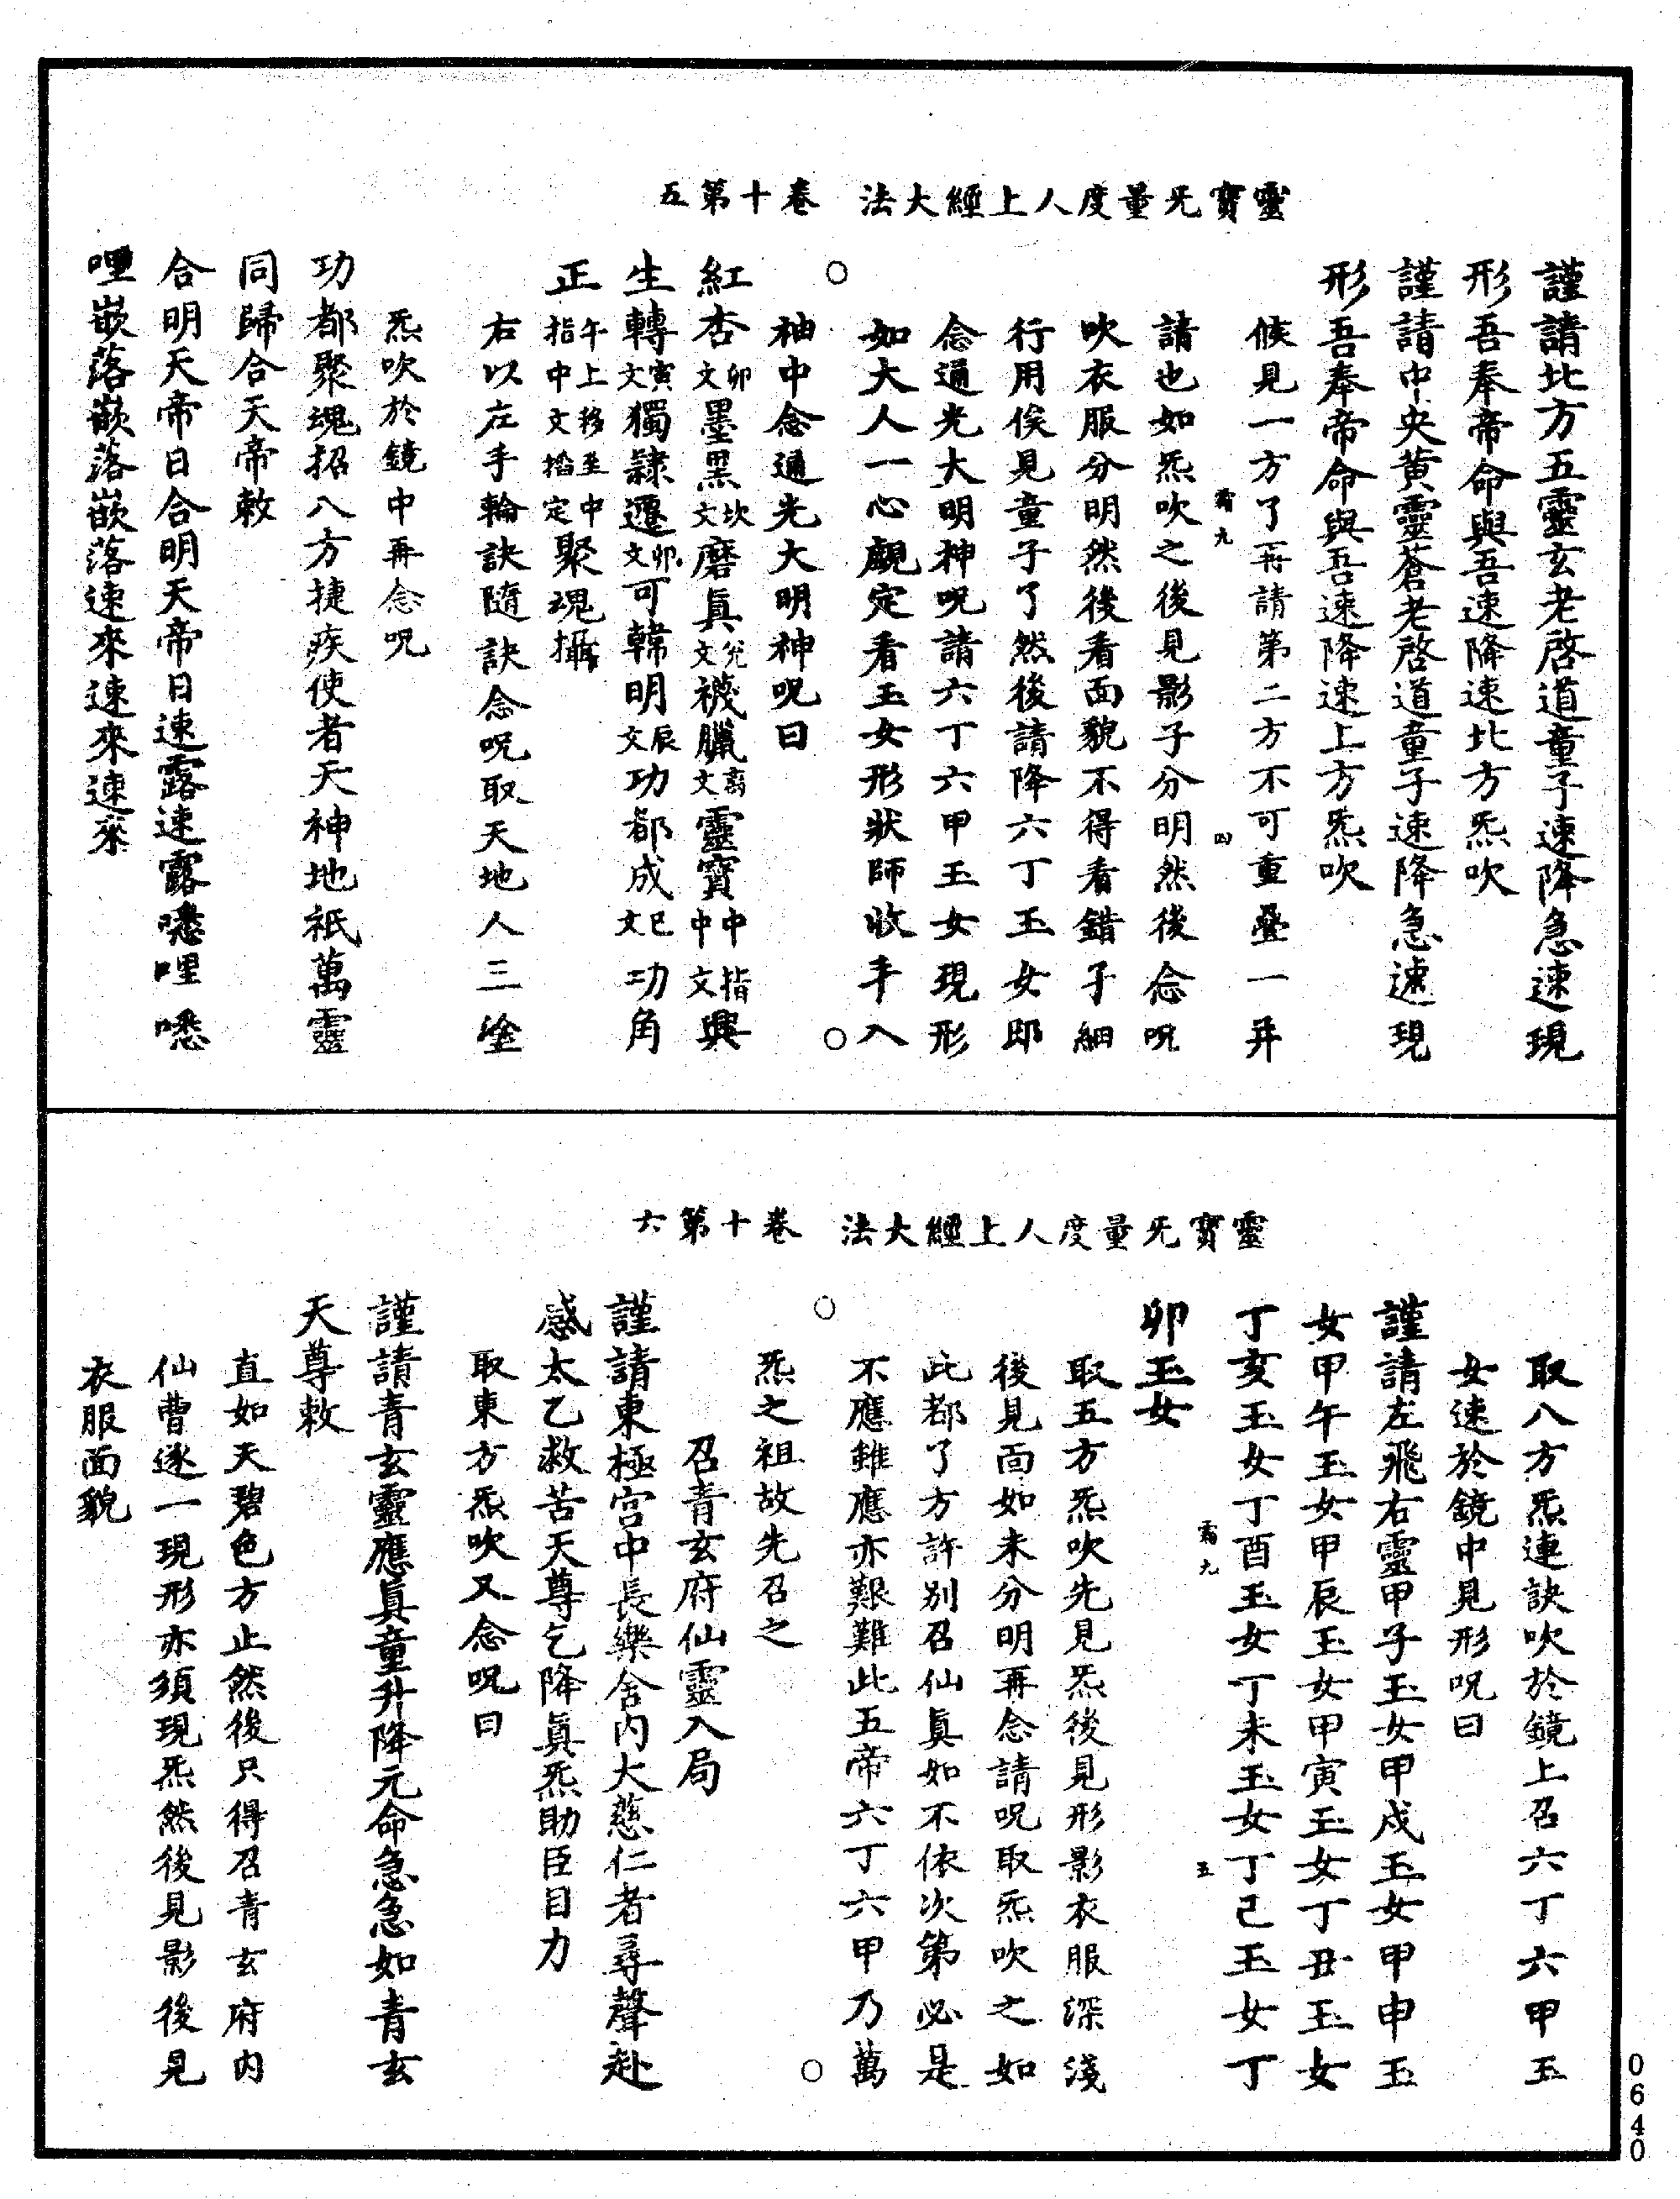 靈寳旡量度人上經大法　卷十第五
謹請北方五靈玄老啓道童子速降急速現
形吾奉帝命與吾速降速北方炁吹
謹請中央黄靈蒼老啓道童子速降急速現
形吾奉帝命與吾速降速上方炁吹
候見一方了再請第二方不可重疊一并
霜九　四
請也如炁吹之後見影子分明然後念呪
吹衣服分明然後看面貌不得看錯子細
行用俟見童子了然後請降六丁玉女即
念通光大明神呪請六丁六甲玉女現形
如大人一心覷定看玉女形狀師收手入
袖中念通光大明神呪曰
紅杏卯文墨黑坎文磨眞兊文襪臘离文靈寳中指中文興
生轉寅文獨隷遷卯文可韓明辰文功都成巳文功角
正午上移至中指中文掐定聚魂攝
右以左手輪訣隨訣念呪取天地人三塗
炁吹於鏡中再念呪
功都聚魂招八方捷疾使者天神地祇萬靈
同歸合天帝敕
合明天帝日合明天帝日速露速露㘁哩㘁
哩嶔落嶔落嶔落速來速來速來
靈寳旡量度人上經大法　卷十第六
取八方炁連訣吹於鏡上召六丁六甲玉
女速於鏡中見形呪曰
謹請左飛右靈甲子玉女甲戌玉女甲申玉
女甲午玉女甲辰玉女甲寅玉女丁丑玉女
丁亥玉女丁酉玉女丁未玉女丁己玉女丁
霜九　五
卯玉女
取五方炁吹先見炁後見形影衣服深淺
後見面如未分明再念請呪取炁吹之如
此都了方許别召仙眞如不依次第必是
不應雖應亦艱難此五帝六丁六甲乃萬
炁之祖故先召之
召青玄府仙靈入局
謹請東極宫中長樂舍内大慈仁者尋聲赴
感太乙救苦天尊乞降眞炁助臣目力
取東方炁吹又念呪曰
謹請青玄靈應眞童升降元命急急如青玄
天尊敕
直如天碧色方止然後只得召青玄府内
仙曹逐一現形亦須現炁然後見影後見
衣服面貌
0640